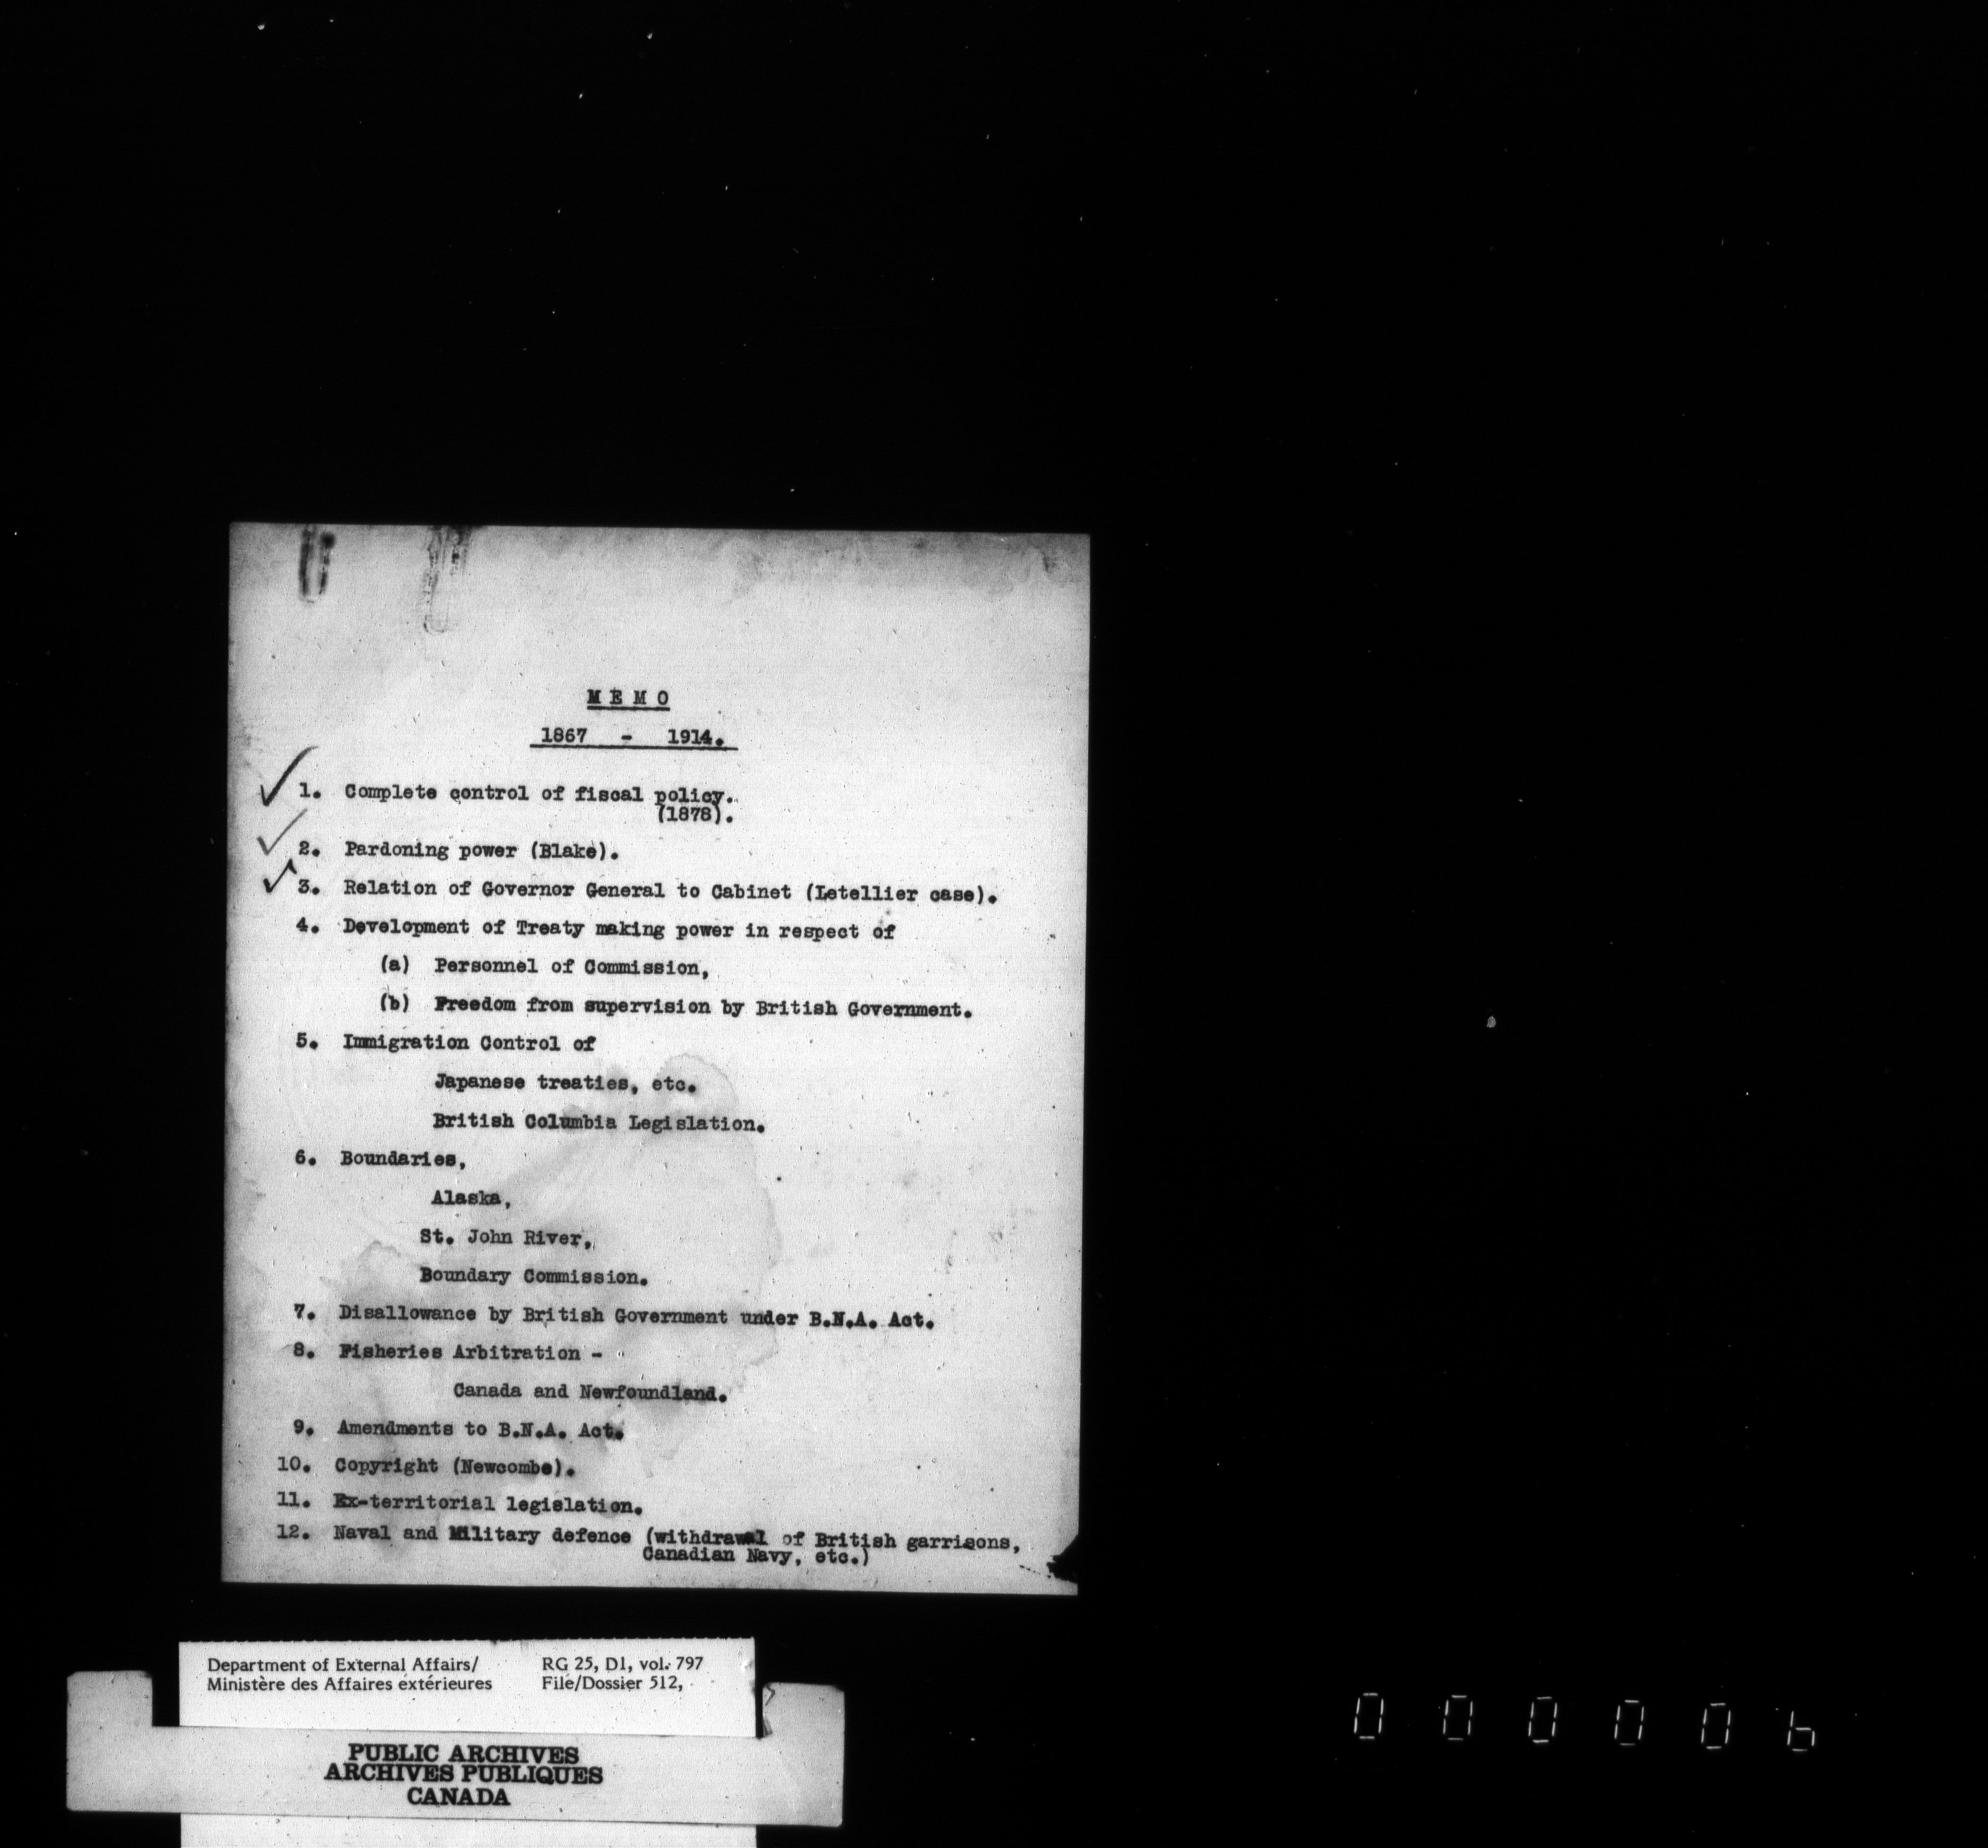 MEMO
1867 - 1914.
1. Complete control of fiscal policy.
(1878).
2. Pardoning power (Blake).
3. Relation of Governor General to Cabinet (Letellier case).
4. Development of Treaty making power in respect of
(a) Personnel of Commission,
(b) Freedom from supervision by British Government.
5. Immigration Control of
Japanese treaties, etc.
British Columbia Legislation.
6. Boundaries,
Alaska,
St. John River,
Boundary Commission.
7. Disallowance by British Government under B.N.A. Act.
8. Fisheries Arbitration -
Canada and Newfoundland.
9. Amendments to B.N.A. Act.
10. Copyright (Newcombe).
11. Ex-territorial legislation.
12. Naval and Military defence (withdrawal of British garrisons,
Canadian Navy, etc.)
Department of External Affairs/ RG 25, D1, vol. 797
Ministère des Affaires extérieures File/Dossier 512,
PUBLIC ARCHIVES
ARCHIVES PUBLIQUES
CANADA
000006